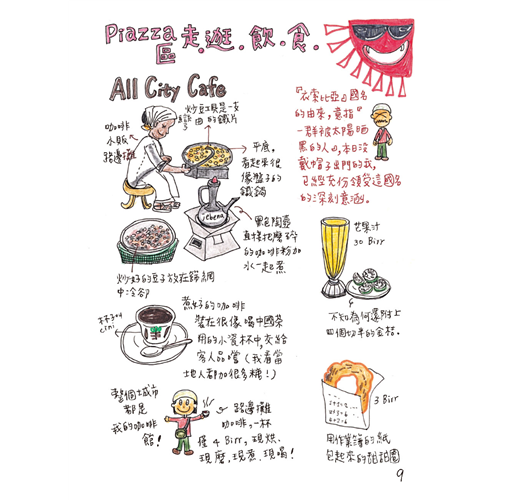 Piazza
區 走.逛.飲.食.
All City Cafe
炒豆鏟是一支
彎曲的鐵片
咖啡
小販
路邊攤
平底,
看起來很
像盤子的
鐵鍋
jebena
黑色陶壺
直接把磨好
的咖啡粉加
水一起煮
炒好的豆子放在篩網
中冷卻
『衣索比亞』國名
的由來,意指『
一群被太陽晒
黑的人』,本日沒
戴帽子出門的我,
已經充份領受這國名
的深刻意涵。
芒果汁
30 Birr
不知為何還附上
四個切半的金桔。
杯子叫
cini
煮好的咖啡
裝在很像喝中國茶
用的小瓷杯中,交給
客人品嚐(我看當
地人都加很多糖!)
整個城市
都是
我的咖啡
館!
路邊攤
咖啡,一杯
僅4 Birr,現烘、
現磨,現煮,現喝!
3 Birr
用作業簿的紙
包起來的甜甜圈
9